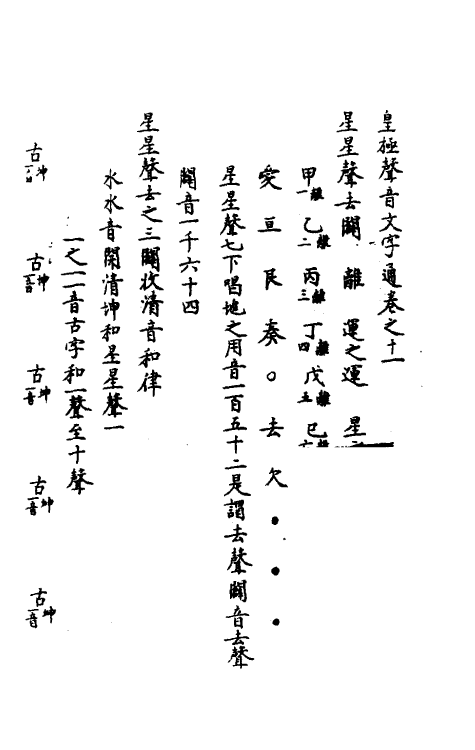 皇極聲音文字通卷之十一
星星聲去闢 離 運之運 星
甲一離 乙二離 丙三離 丁四離 戊五離 巳六離
爻亘艮奏○去欠●●●
星星聲七下唱地之用音一百五十二是謂去聲闢音去聲
闢音一千六十四
星星聲去之三闢收清音和律
水水音開清坤和星星聲一
一之一一音古字和一聲至十聲
古坤一音 古坤一音 古坤一音 古坤一音 古坤一音